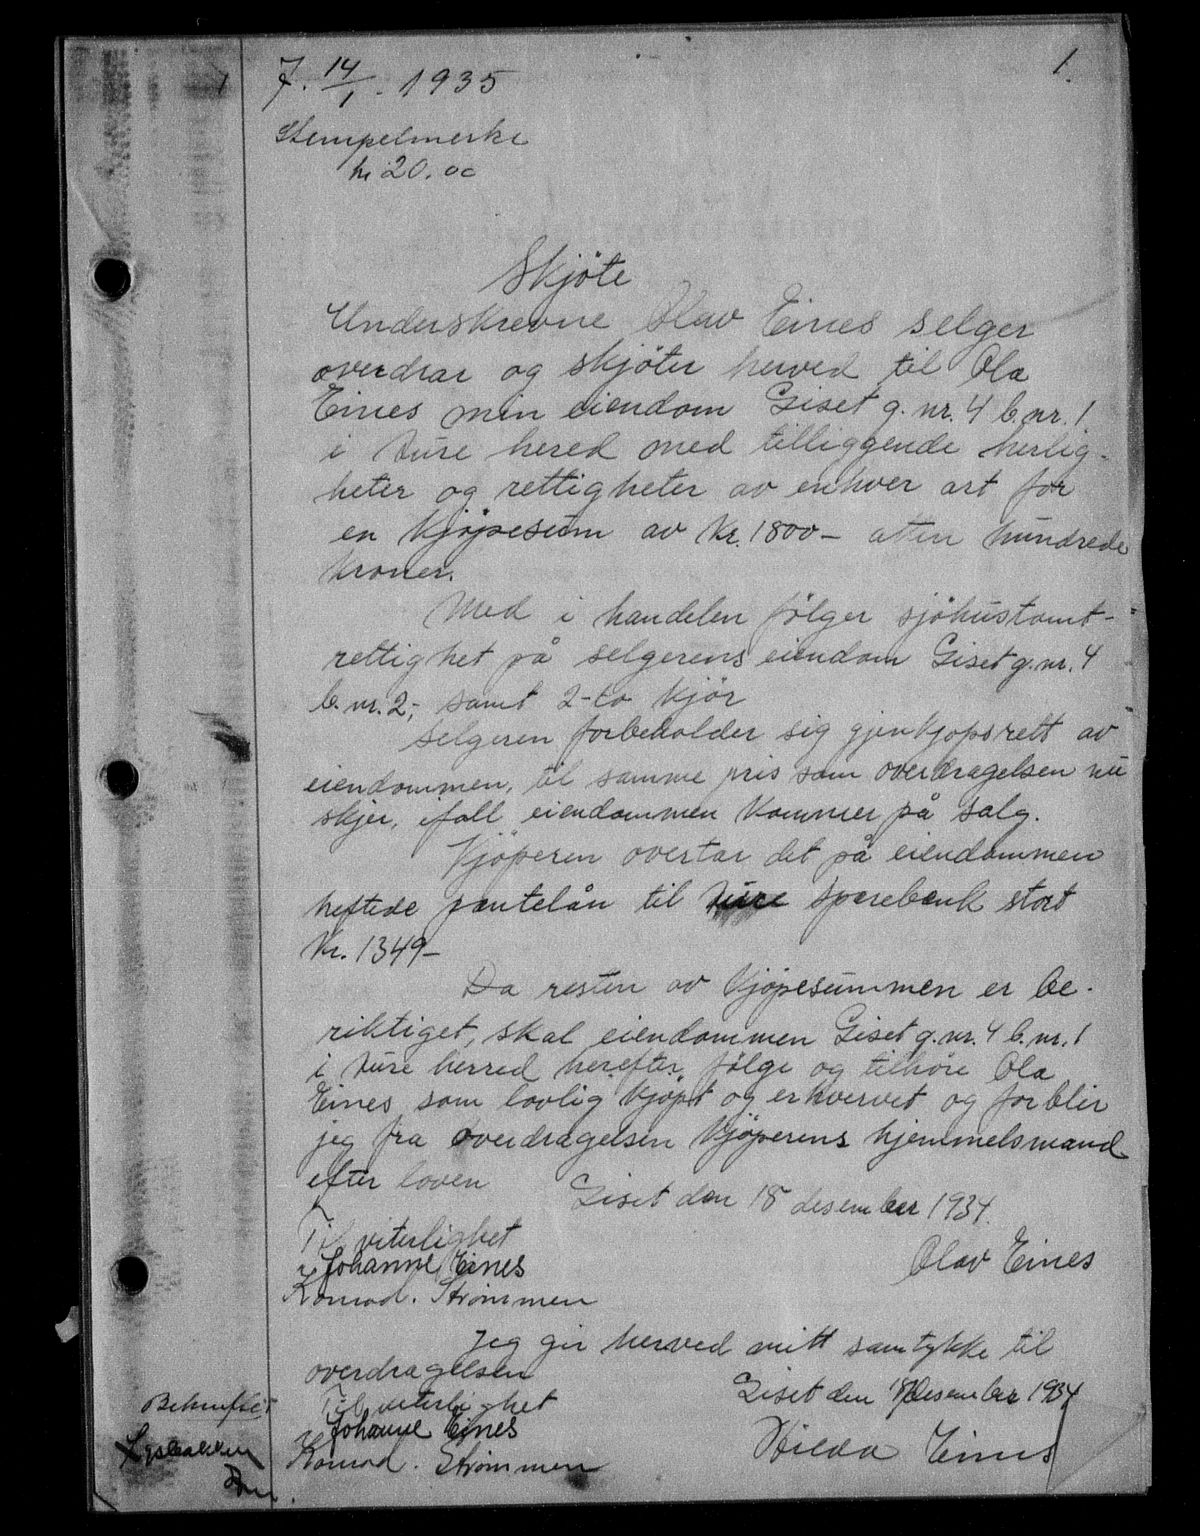 1.
J. 14/1. 1935
Stempelmerke
kr 20.00
Skjöte
Underskrevne Olav Eines selger
overdrar og skjöter herved til Ola
Eines min eiendom Giset g.nr. 4 b.nr. 1
i Ture hered med tilliggende herlig-
heter og rettigheter av enhver art for
en kjöpesum av kr. 1800 – atten hundrede
kroner.
Med i handelen fölger sjöhustomt-
rettighet på selgerens eiendom Giset g.nr. 4
b.nr. 2, samt 2-to kjör
Selgeren forbeholder sig gjenkjopsrett av
eiendommen, til samme pris som overdragelsen nu
skjer, ifall eiendommen kommer på salg.
Kjöperen overtar det på eiendommen
heftede pantelån til Ture sparebank stort
kr. 1349 –
Da resten av kjöpesummen er be-
riktiget, skal eiendommen Giset g.nr. 4 b.nr. 1
i Ture herred herefter fölge og tilhöre Ola
Eines som lovlig kjöpt og erhvervet og forblir
jeg fra overdragelsen kjöperens hjemmelsmand
efter loven
Giset den 18 desember 1934.
Til viterlighet
Johanne Eines
Olav Eines
Konrad. Strømmen
Jeg gir herved mitt samtykke til
overdragelsen
Giset den 18 desember 1934
Til viterlighet
Johanne Eines
Hilda Eines
Konrad. Strømmen
Bekreftet